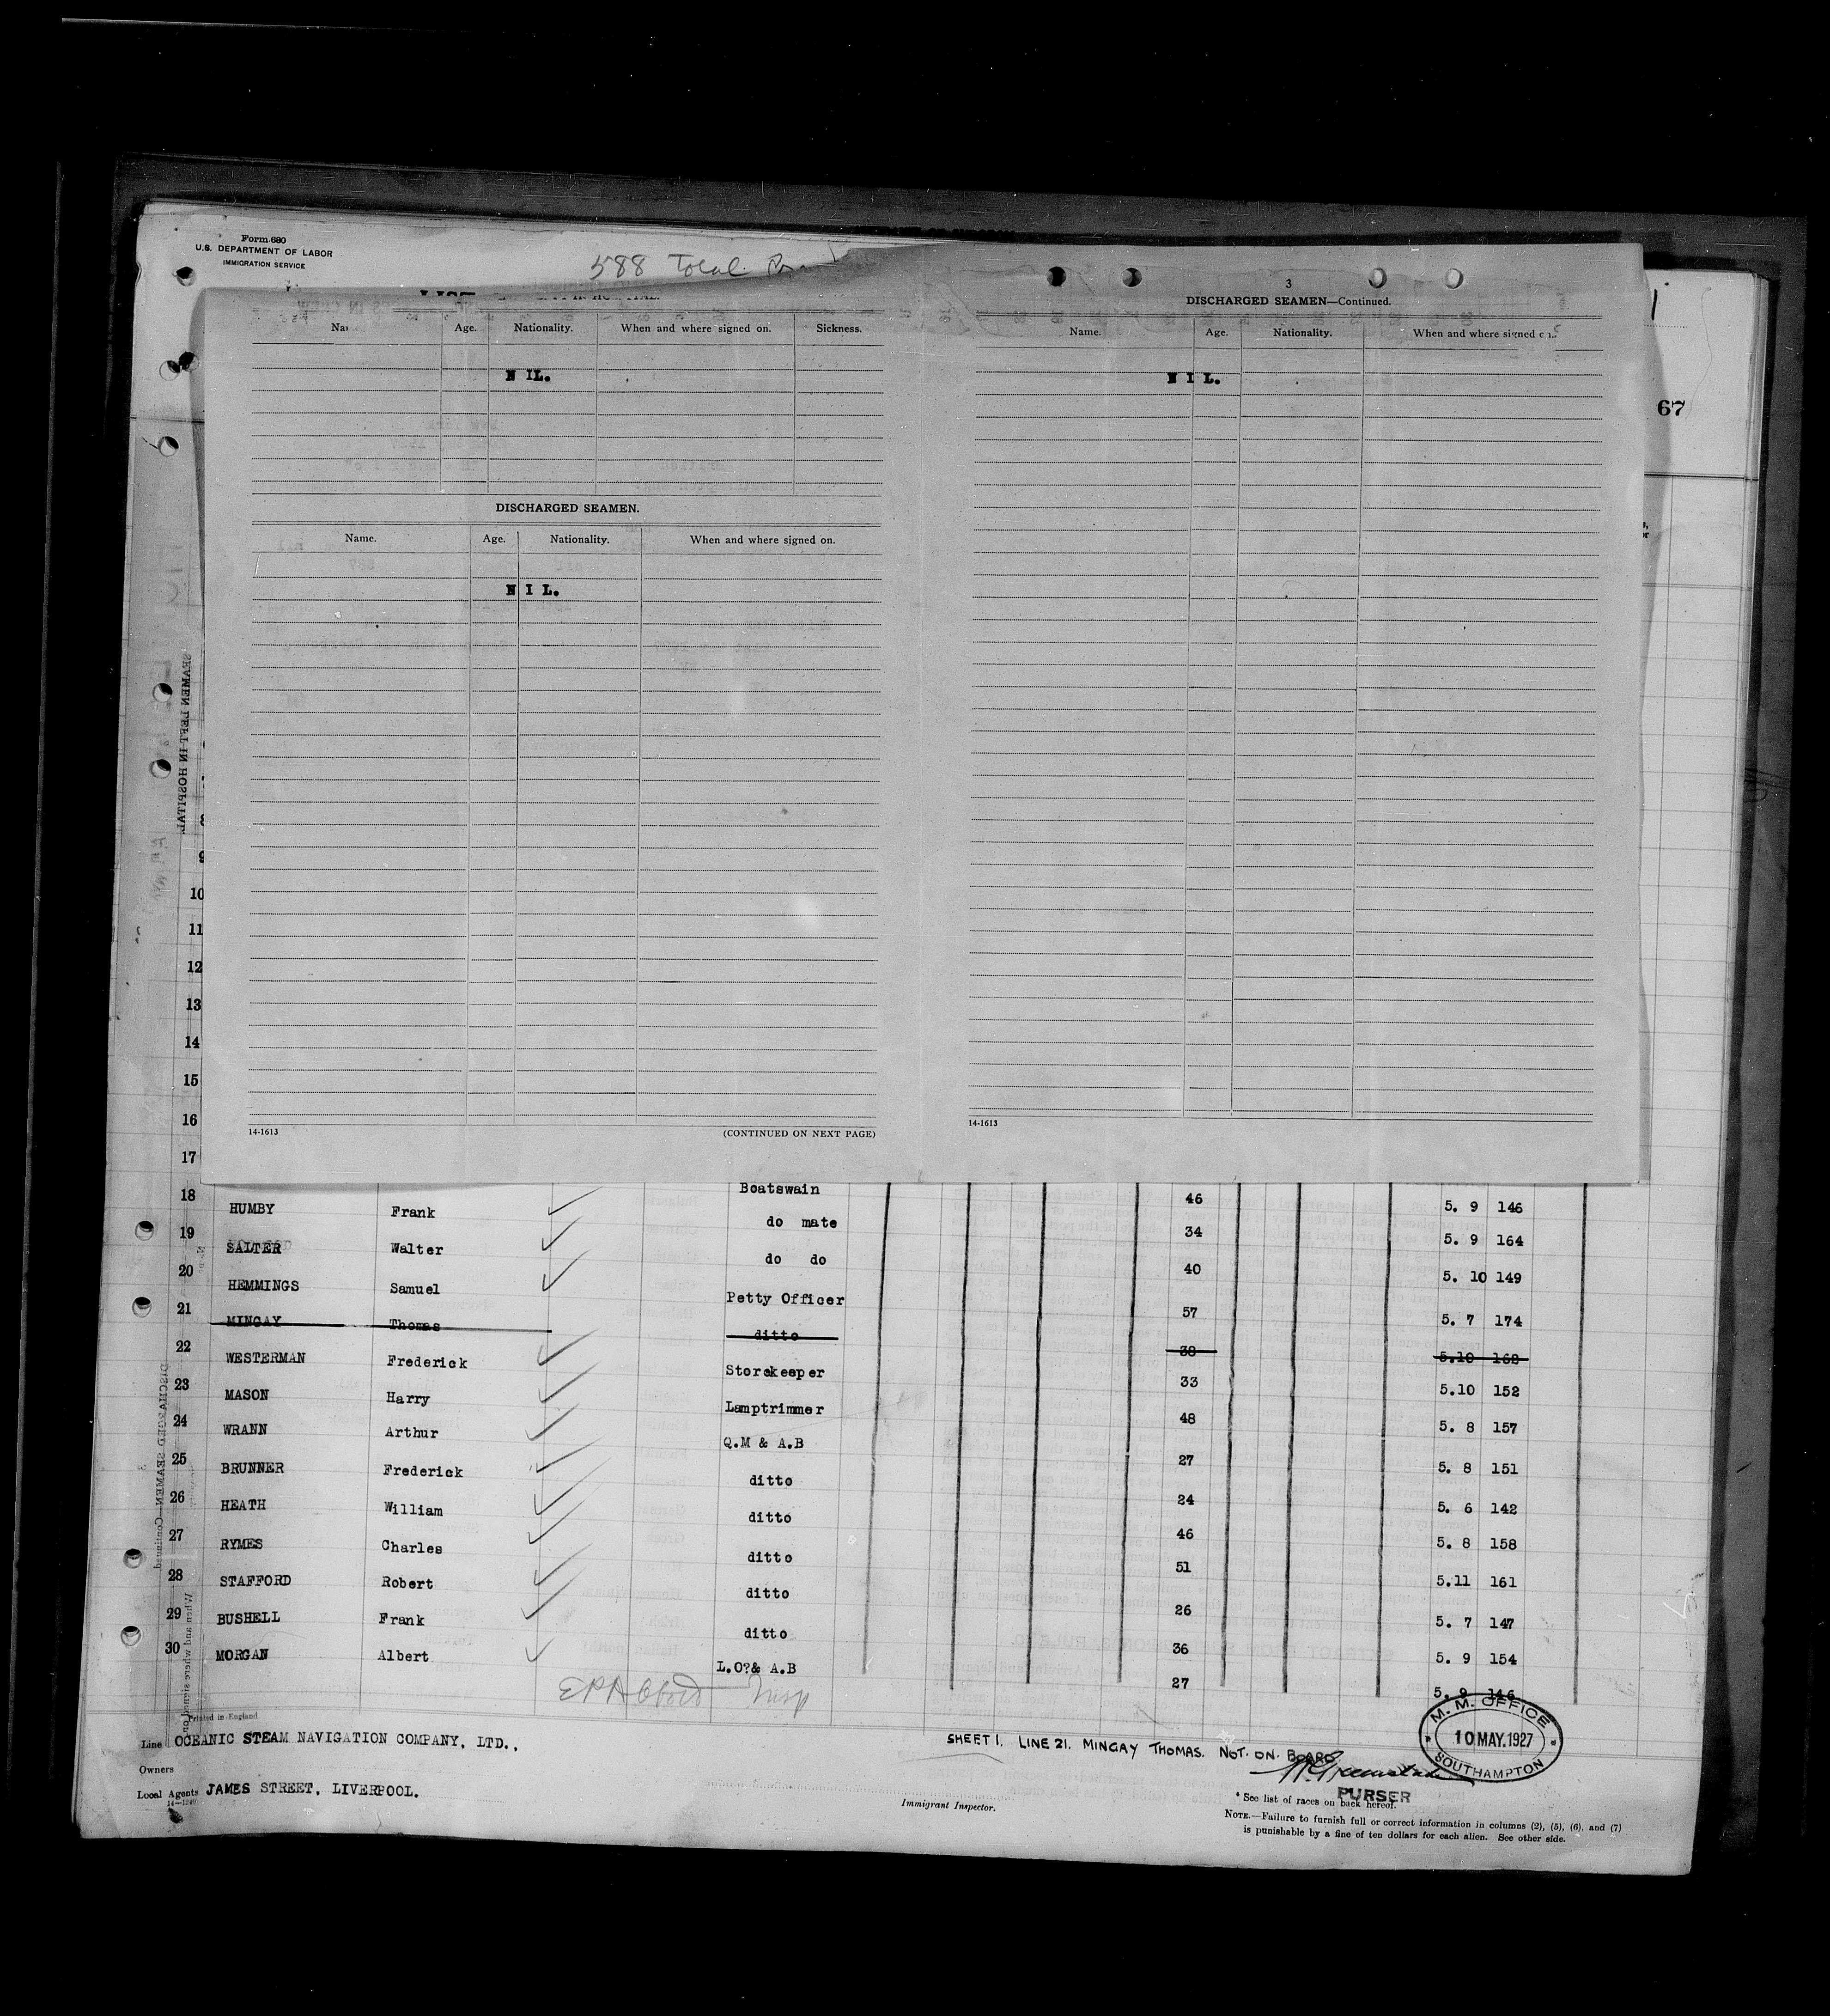 Form 680
U.S. DEPARTMENT OF LABOR
IMMIGRATION SERVICE
588 Total
67
Age. Nationality. When and where signed on. Sickness.
NIL.
DISCHARGED SEAMEN.
Name. Age. Nationality. When and where signed on.
NIL.
14-1613 (CONTINUED ON NEXT PAGE)
3
DISCHARGED SEAMEN—Continued.
Name. Age. Nationality. When and where signed
NIL.
14-1613
SEAMEN LEFT IN HOSPITAL.
DISCHARGED SEAMEN—Continued
When and where signed on
9
10
11
12
13
14
15
16
17 Boatswain 46 5. 9 146
18 HUMBY Frank do mate 34 5. 9 164
19 SALTER Walter do do 40 5. 10 149
20 HEMMINGS Samuel Petty Officer 57 5. 7 174
21 MINGAY Thomas ditto 38 5.10 168
22 WESTERMAN Frederick Storekeeper 33 5.10 152
23 MASON Harry Lamptrimmer 48 5. 8 157
24 WRANN Arthur Q.M & A.B 27 5. 8 151
25 BRUNNER Frederick ditto 24 5. 6 142
26 HEATH William ditto 46 5. 8 158
27 RYMES Charles ditto 51 5.11 161
28 STAFFORD Robert ditto 26 5. 7 147
29 BUSHELL Frank ditto 36 5. 9 154
30 MORGAN Albert L.O?& A.B 27 5. 9 146
Printed in England
Line OCEANIC STEAM NAVIGATION COMPANY, LTD.,
Owners
Local Agents JAMES STREET, LIVERPOOL.
14—1240
SHEET 1. LINE 21. MINGAY THOMAS. NOT. ON. BOARD
PURSER
M. M. OFFICE
10 MAY. 1927
SOUTHAMPTON
Immigrant Inspector.
* See list of races on back hereof.
NOTE.—Failure to furnish full or correct information in columns (2), (5), (6), and (7)
is punishable by a fine of ten dollars for each alien. See other side.